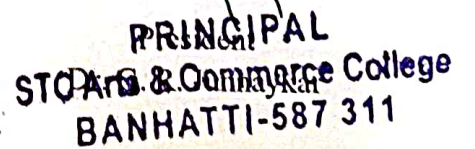 PRINCIPAL
STC Arts & Commerce College
BANHATTI-587 311